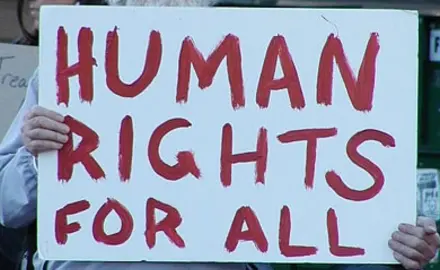 Trea
HUMAN
RIGHTS
FOR ALL